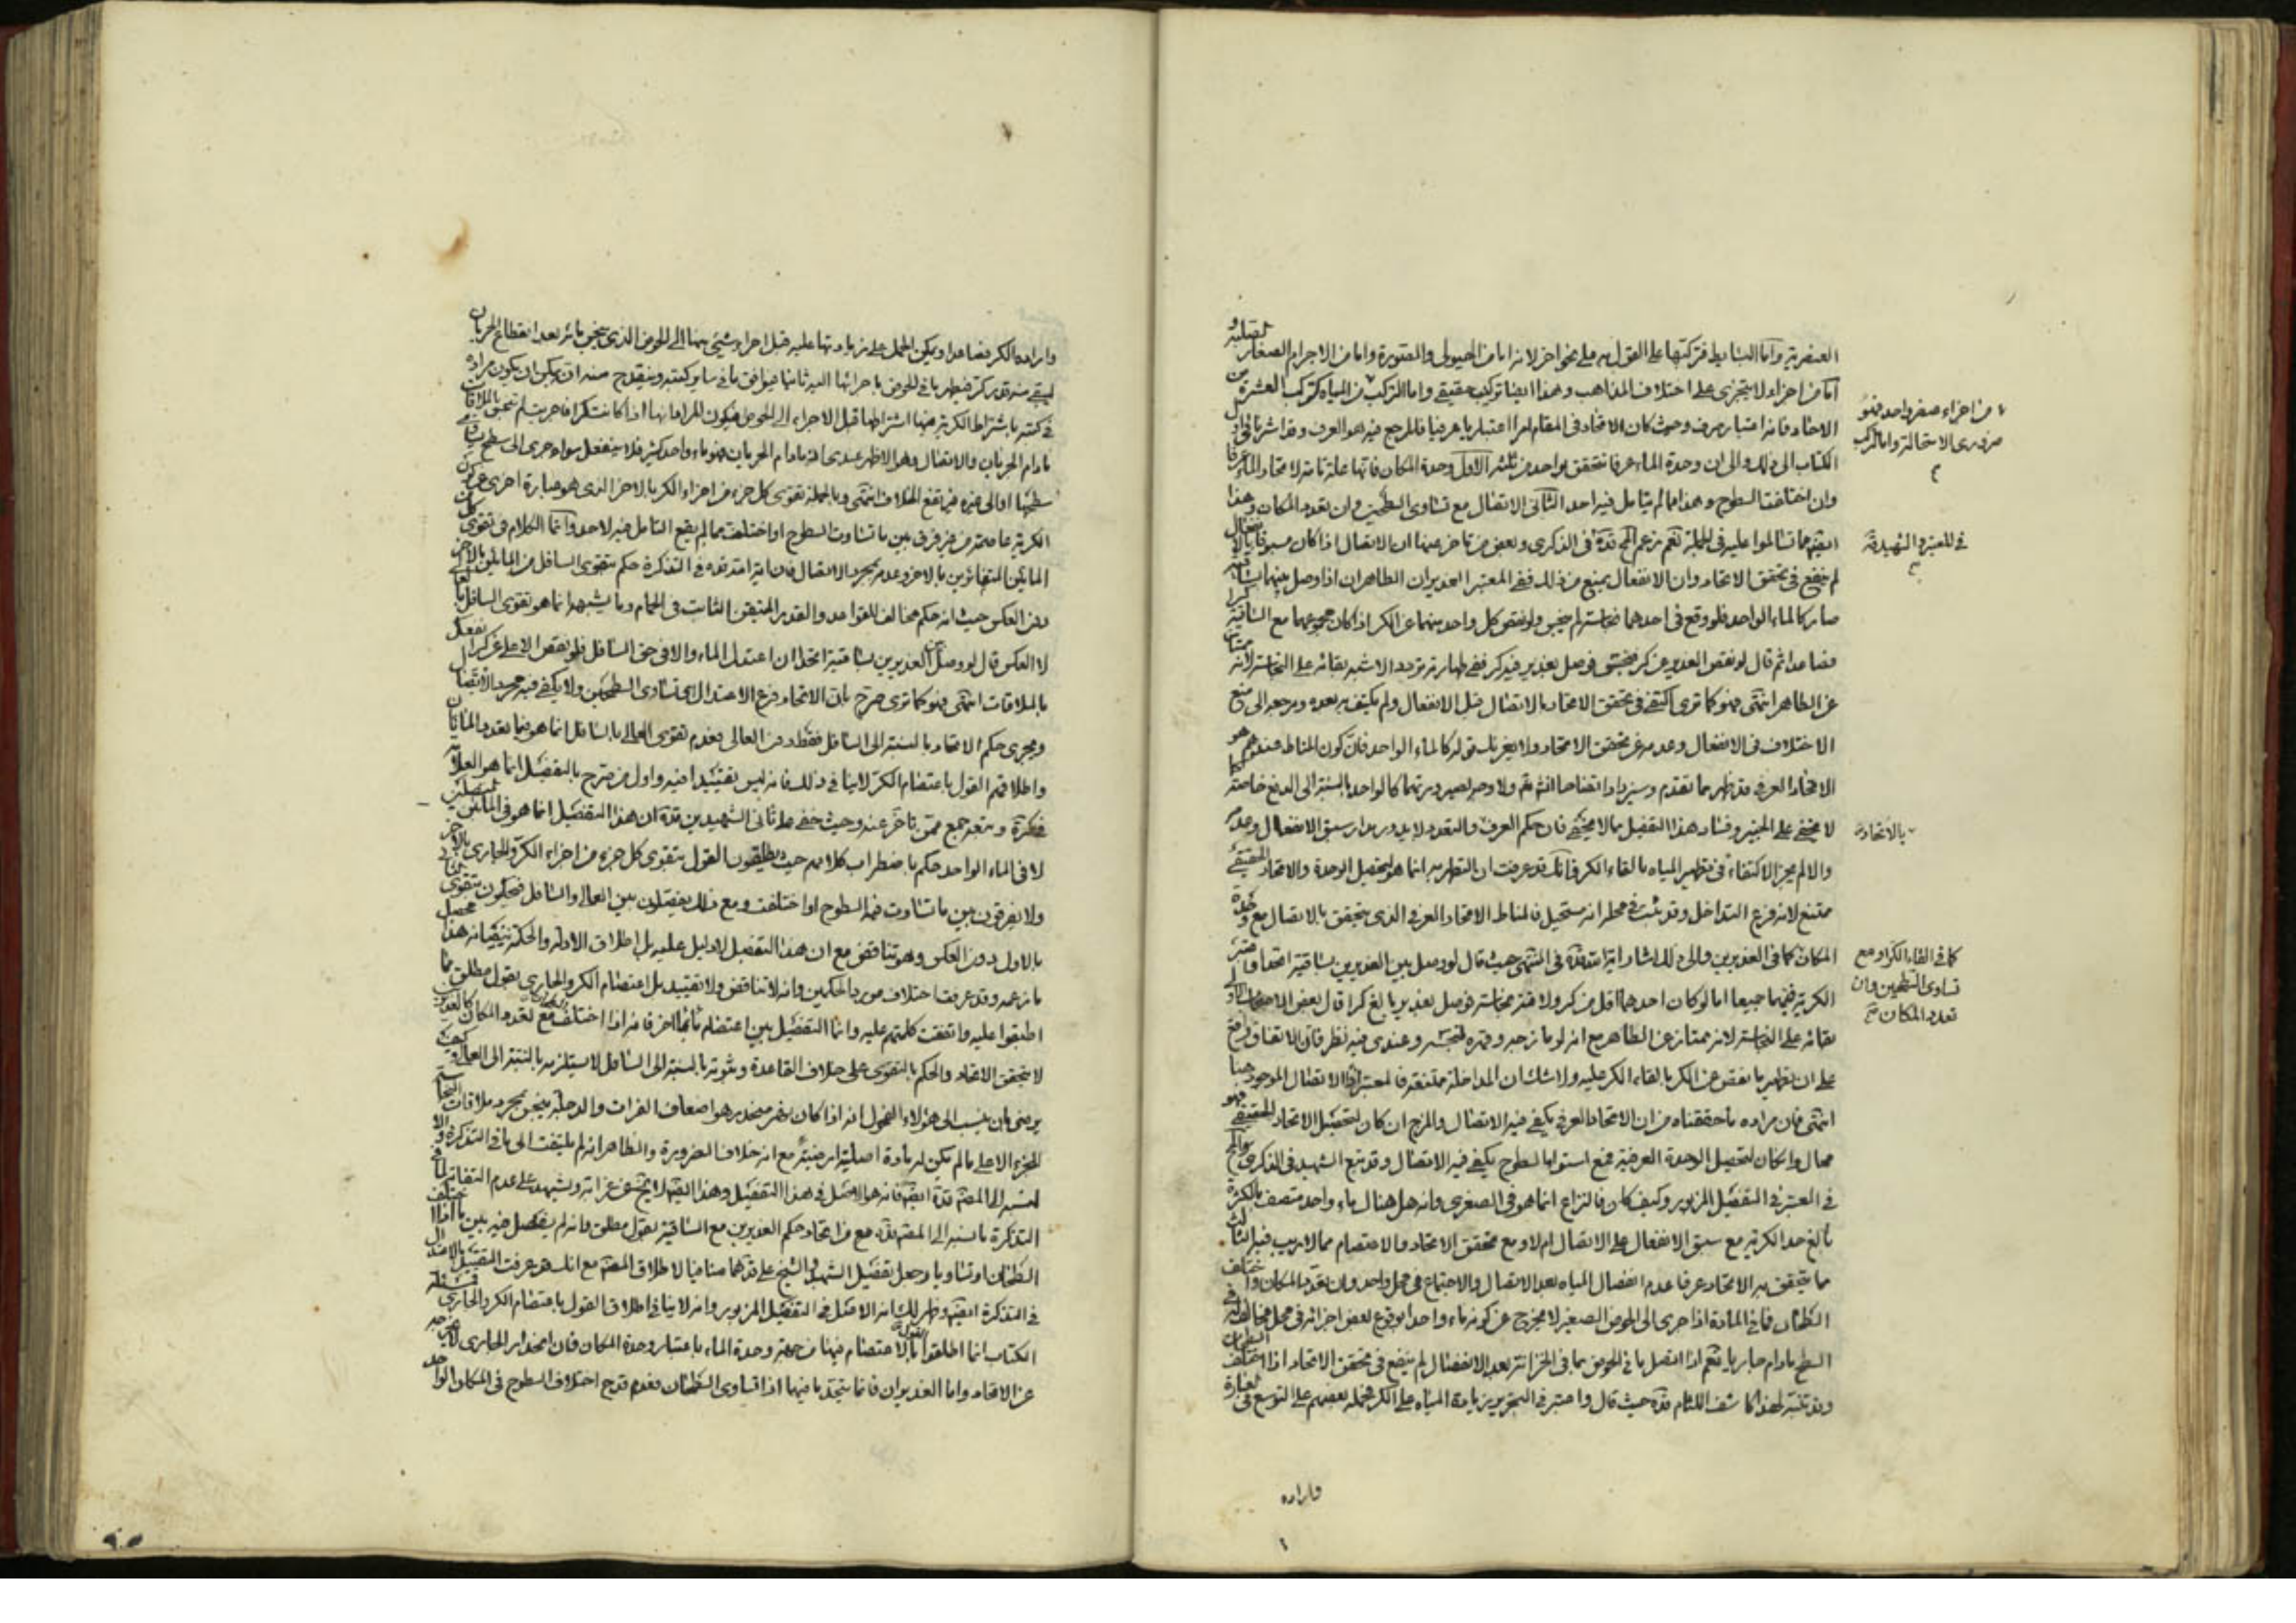 العنصرية واما البسايط فتركتها على القول به على نحو اخر لانه اما من الهيولى والصورة واما من الاجرام الصغار الصلبة و
اما من اجزاء لا يتجزى على اختلاف المذاهب وهذا ايضا تركيب حقيقي واما التركب من المياه كتركب العشرة من
الاحاد فانه اعتبار صرف وحيث كان الاتحاد في المقام امرا اعتباريا عرفيا فالمرجع فيه هو العرف وقد اشرنا في اول
الكتاب الى ذلك والى ان وحدة الماء عرفا تتحقق بواحد من ثلثة الاول وحدة المكان فانها علة تامة لاتحاد الماء عرفا
وان اختلفت السطوح وهذا مما لم يتامل فيه احد الثاني الاتصال مع تساوى السطحين وان تعدد المكان وهذا
ايضا مما تسالموا عليه في الجملة نعم زعم قدّه في الذكرى وبعض من تاخر عنه ان الاتصال اذا كان مسبوقا بالانفعال
لم ينفع في تحقق الاتحاد وان الانفعال يمنع من ذلك ففي المعتبر الغديران الطاهران اذا وصل بينهما بساقية
صار كالماء الواحد فلو وقع في احدهما نجاسة لم ينجس ولو نقص كل واحد منهما عن الكر اذا كان مجموعهما مع الساقية كرا
فصاعدا ثم قال لو نقص الغدير عن كر فنجس فوصل بغدير فيه كر ففي طهارته تردد والاشبه بقائه على النجاسة لانه ممتاز
عن الطاهر انتهى فهو كما ترى اكتفى في تحقق الاتحاد بالاتصال قبل الانفعال ولم يكتف به بعده ومرجعه الى منع
الاختلاف في الانفعال وعدمه عن تحقق الاتحاد ولا يغرنك قوله كالماء الواحد فان كون المناط عندهم هو
الاتحاد العرفي قد ظهر مما تقدم وسيزداد اتضاحا انش تع ولا وجه لصيرورتهما كالواحد بالنسبة الى الدفع خاصة كما
لا يخفى على الخبير وفساد هذا التفصيل مما لا يخفى فان حكم العرف بالاتحاد والتعدد لا يدور مدار سبق الانفعال وعدمه
والا لم يجز الاكتفاء في تطهير المياه بالقاء الكر فانك قد عرفت ان التطهر به انما هو لتحصيل الوحدة والاتحاد الحقيقي
ممتنع لانه فرع التداخل وقد ثبت في محله انه مستحيل فالمناط الاتحاد العرفي الذى يتحقق بالاتصال مع وحدة
المكان كما في الغديرين والى ذلك اشار اية الله قدّه في المنتهى حيث قال لو وصل بين الغديرين بساقية اتحدا واعتبر
الكرية فيهما جميعا اما لو كان احدهما اقل من كر ولاقته نجاسة فوصل بغدير بالغ كرا قال بعض الاصحاب الاولى
بقائه على النجاسة لانه ممتاز عن الطاهر مع انه لو مازجه وقهره لنجسه وعندى فيه نظر فان الاتفاق واقع
على ان تطهير ما نقص عن الكر بالقاء الكر عليه ولا شك ان المداخلة ممتنعة فالمعتبر اذا الاتصال الموجود هنا
انتهى فان مراده ما حققناه من ان الاتحاد العرفي يكفي فيه الاتصال والمزج ان كان لتحصيل الاتحاد الحقيقي فهو
محال وان كان لتحصيل الوحدة العرفية فمع استواء السطوح يكفي فيه الاتصال وقد تبع الشهيد في الذكرى
في المعتبر في التفصيل المزبور وكيف كان فالنزاع انما هو في الصغرى وانه هل هناك ماء واحد متصف بالكرية
بالغ حد الكرية مع سبق الانفعال على الاتصال ام لا ومع تحقق الاتحاد والاعتصام مما لا ريب فيه الثالث
مما يتحقق به الاتحاد عرفا عدم انفصال المياه بعد الاتصال والاجتماع في محل واحد وان تعدد المكان واختلف
السطحان فما في المادة اذا جرى الى الحوض الصغير لا يخرج عن كونه ماء واحدا بوقوع بعض اجزائه في محل مخالف له في
السطح مادام جاريا نعم اذا اتصل ما في الحوض بما في الخزانة بعد الانفصال لم ينفع في تحقق الاتحاد اذا اختلف السطحان
وقد تنبه لهذا كاشف اللثام قدّه حيث قال واعتبر في التحرير زيادة المياه على الكر فحمله بعضهم على التوسع في العبارة
من اجزاء صغير واحد فهو
ضرورى الاستحالة واما التركب
في المعتبر والشهيد قدّه
بالاتحاد
كما في القاء الكر او مع
تساوى السطحين وان
تعدد المكان
وارادة
وارادة الكر فصاعدا ويمكن الحمل على زيادتها عليه قبل اجراء شئ منها الى الحوض الذى ينجس مائه بعد انقطاع الجريان
ليبقى منه قدر كر فيطهر ما في الحوض باجرائها اليه ثانيا فيوافق ما في ساير كتبه وينقدح منه انه يمكن ان يكون مراده
في كتبه باشتراط الكرية فيها اشتراطها قبل الاجراء الى الحوض فيكون المراد انها اذا كانت كرا فاجريت لم تنجس بالملاقات
مادام الجريان والاتصال وهو الاظهر عندى اذ مادام الجريان فهو ماء واحد كثير فلا ينفعل سواء جرى الى سطح يساوى
سطحها او الى غيره فيرتفع الخلاف انتهى وبالجملة تقوى كل جزء من اجزاء الكر بالاخر الذى هو عبارة اخرى عن كون
الكرية عاصمة من غير فرق بين ما تساوت السطوح او اختلفت مما لم يقع التامل فيه لاحد وانما الكلام في تقوى كل من
المائين المتغايرين بالاخر وعدمه بمجرد الاتصال فان اية الله قدّه في التذكرة حكم بتقوى السافل من المائين بالاخر
دون العكس حيث انه حكم مخالف للقواعد والقدر المتيقن الثابت في الحمام وما يشبهه انما هو تقوى السافل بالعالى
لا العكس قال لو وصل بين الغديرين بساقية اتحدا ان اعتدل الماء والا في حق السافل فلو نقص الاعلى عن كر انفعل
بالملاقات انتهى فهو كما ترى صرح بان الاتحاد فرع الاعتدال اى تساوى السطحين ولا يكفي فيه مجرد الاتصال
ويجرى حكم الاتحاد بالنسبة الى السافل فقط دون العالى فعدم تقوى العالى بالسافل انما هو فيما تعدد المائان
واطلاقهم القول باعتصام الكر لا ينافي ذلك فانه ليس تقييدا فيه واول من صرح بالتفصيل انما هو العلامة
في التذكرة وتبعه جمع ممن تاخر عنه وحيث خفى على ثانى الشهيدين قدّه ان هذا التفصيل انما هو في المائين المتصلين
لا في الماء الواحد حكم باضطراب كلامهم حيث يطلقون القول بتقوى كل جزء من اجزاء الكر والجارى بالاخر
ولا يفرقون بين ما تساوت فيه السطوح او اختلفت ومع ذلك يفصلون بين العالى والسافل فيحكمون بتقوى الثانى
بالاول دون العكس وهو تناقض مع ان هذا التفصيل لا دليل عليه بل اطلاق الادلة والحكمة ينفيانه هذا محصل
ما زعمه وقد عرفت اختلاف مورد الحكمين وانه لا تناقض ولا تقييد بل اعتصام الكر والجارى بقول مطلق مما
اطبقوا عليه واتفقت كلمتهم عليه وانما التفصيل بين اعتصام ماء بماء اخر فانه اذا اختلف مع تعدد المكان كالغديرين
لا يتحقق الاتحاد والحكم بالتقوى على خلاف القاعدة وثبوته بالنسبة الى السافل لا يستلزمه بالنسبة الى العالى وكيف
يرضى بان ينسب الى هؤلاء الفحول انه اذا كان نهر منحدر هو اضعاف الفرات والدجلة ينجس بمجرد ملاقات النجاسة
للجزء الاعلى ما لم يكن له مادة اصلية مع انه خلاف الضرورة والظاهر انه لم يلتفت الى ما في التذكرة والا
لنسبه الى المصنف قدّه ايضا فانه هو الاصل في هذا التفصيل وهذا ايضا لا يخلو عن غرابة ويشهد على عدم التفاته الى
التذكرة ما نسبه الى المصنف قدّه مع من اتحاد حكم الغديرين مع الساقية بقول مطلق وانه لم يفصل فيه بين ما اذا اختلف
السطحان او تساويا وجعل تفصيل الشهيد والشيخ على قدّهما منافيا لاطلاق المصنف مع انك قد عرفت التفصيل بالاعتدال
في التذكرة ايضا وظهر لك انه الاصل في التفصيل المزبور وانه لا ينافي اطلاق القول باعتصام الكر والجارى
الكتاب انما اطلقوا القول بالاعتصام فيها من جهة وحدة الماء باعتبار وحدة المكان فان انحدار الجارى لا يخرجه
عن الاتحاد واما الغديران فانما يتحد ما فيهما اذا تساوى السطحان فعدم قدح اختلاف السطوح في المكان الواحد